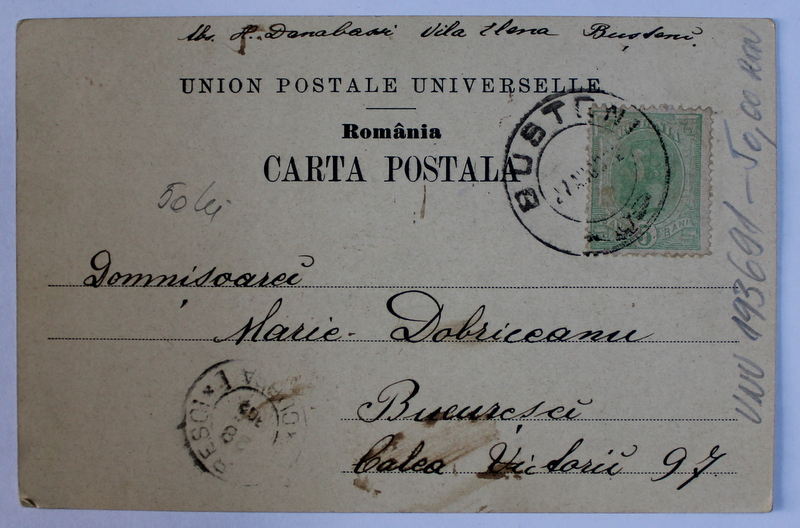 H. Danabassi Vila Elena Bușteni.
UNION POSTALE UNIVERSELLE
România
CARTA POSTALA
BUSTENI
BANI
50 lei
Domnișoarei
Marie Dobriceanu
București
Calea Victorii 97.
VNV 193691 - 50,00 RON